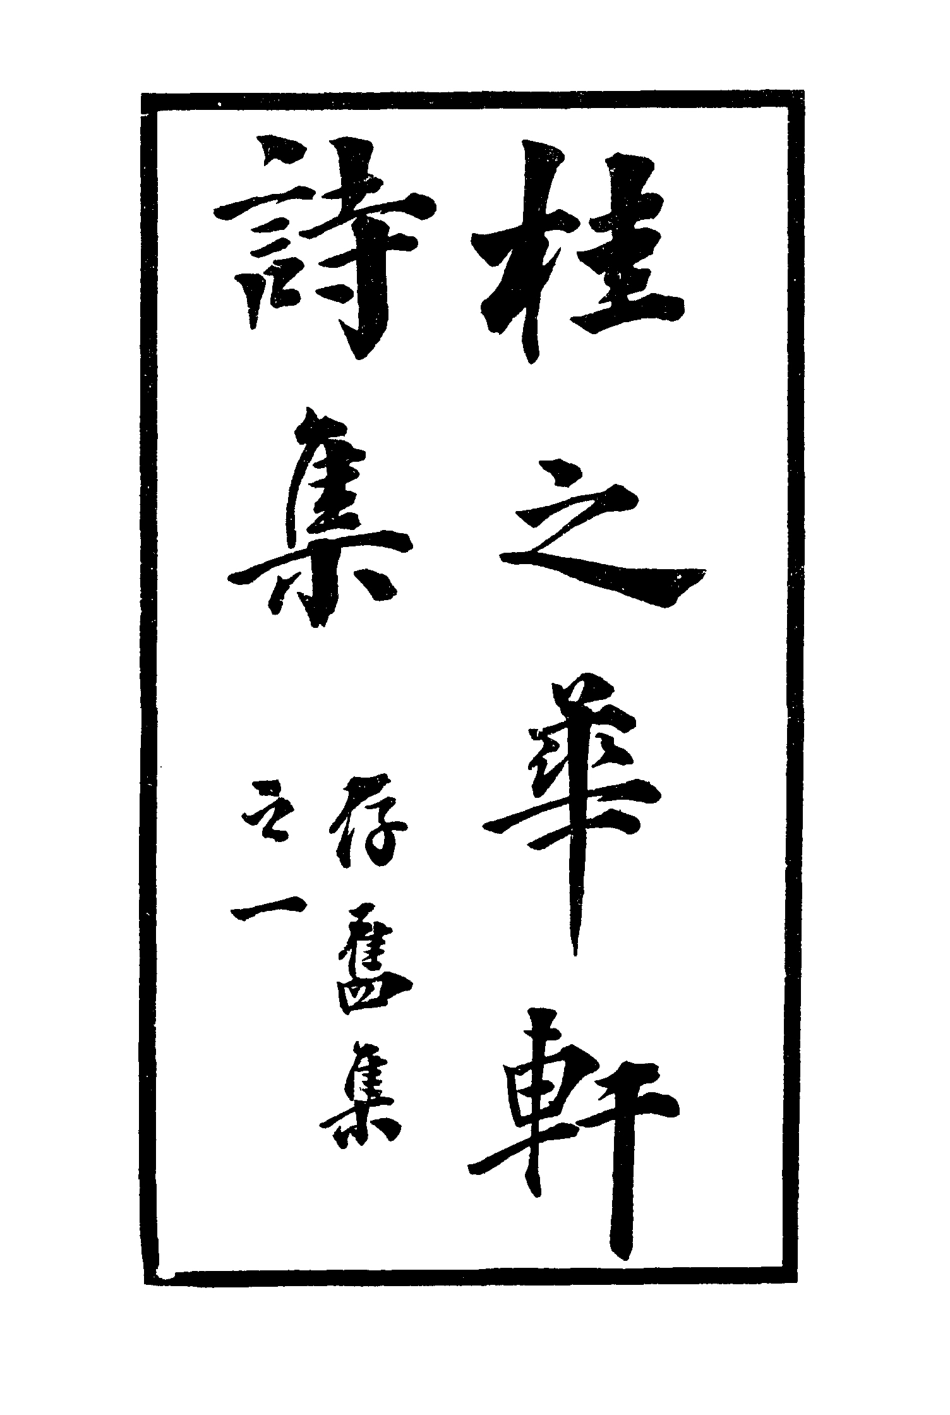 桂之華軒
詩集
存舊集
之一